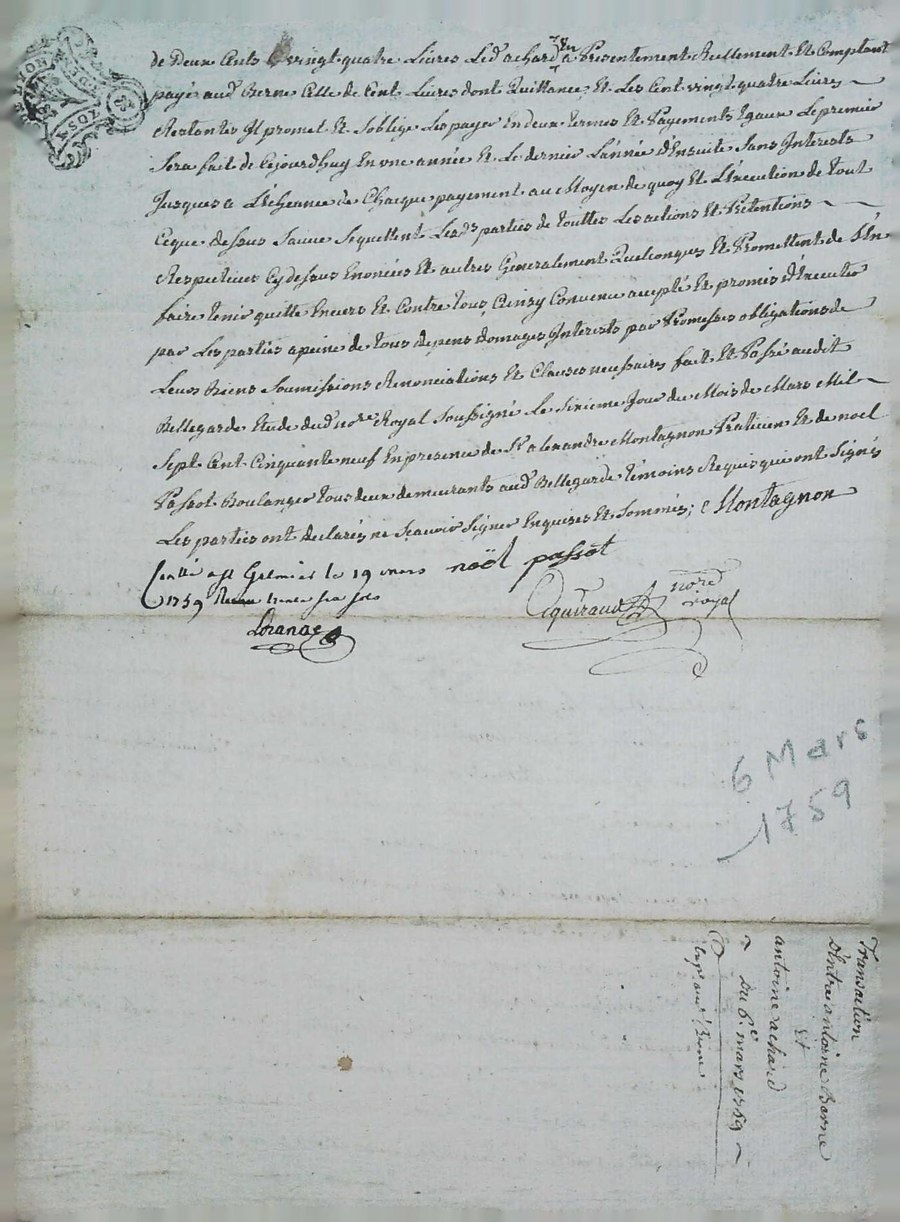 de Deux Cents vingt quatre Livres Led achard a Presentement Reellement Et Comptant
payé aud Berne Celle de Cent Livres dont Quittance, Et Les Cent vingt quatre Livres
Restantes Il promet Et Soblige Les payer En deux termes Et Payements Egaux Le premier
Sera fait de Cejourdhuy En une année Et Le dernier L'année d'Ensuite Sans Interests
Jusques a L'Echeance de Chacque payement au Moyen de quoy Et L'Execution de tout
Ceque dessus Lesds parties de touttes Les actions Et Pretentions
Respectives Cy dessus Enoncées Et autres Generalement Quelconques Et Promettent de S'En
faire tenir quitte Envers Et Contre tous, Ainsy Convenu accepté Et promis d'Executer
par Les parties a peine de tous depens domages Interests par Promesses obligations de
Leurs Biens Soumissions Renonciations Et Clauses necessaires fait Et Passé audit
Bellegarde Etude dud nore Royal Soussigné Le Sixieme Jour du Mois de Mars Mil
Sept Cent Cinquante neuf En presence de Sr alexandre Montagnon Praticien Et de noel
Passot Boulanger tous deux demeurants aud Bellegarde témoins Requis qui ont Signés
Les parties ont declarés ne Scavoir Signer Enquises Et Sommés; Montagnon
Contlé a St Galmier le 19 mars noël passot
1759 Reçu trente six sols
nore royal
6 Mars
1759
Transaction
D'Entre antoine Berne
Et
antoine achard
Du 6e mars 1759